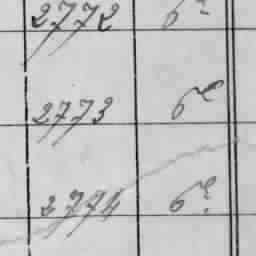 2772 6e
2773 6e
2774 6e